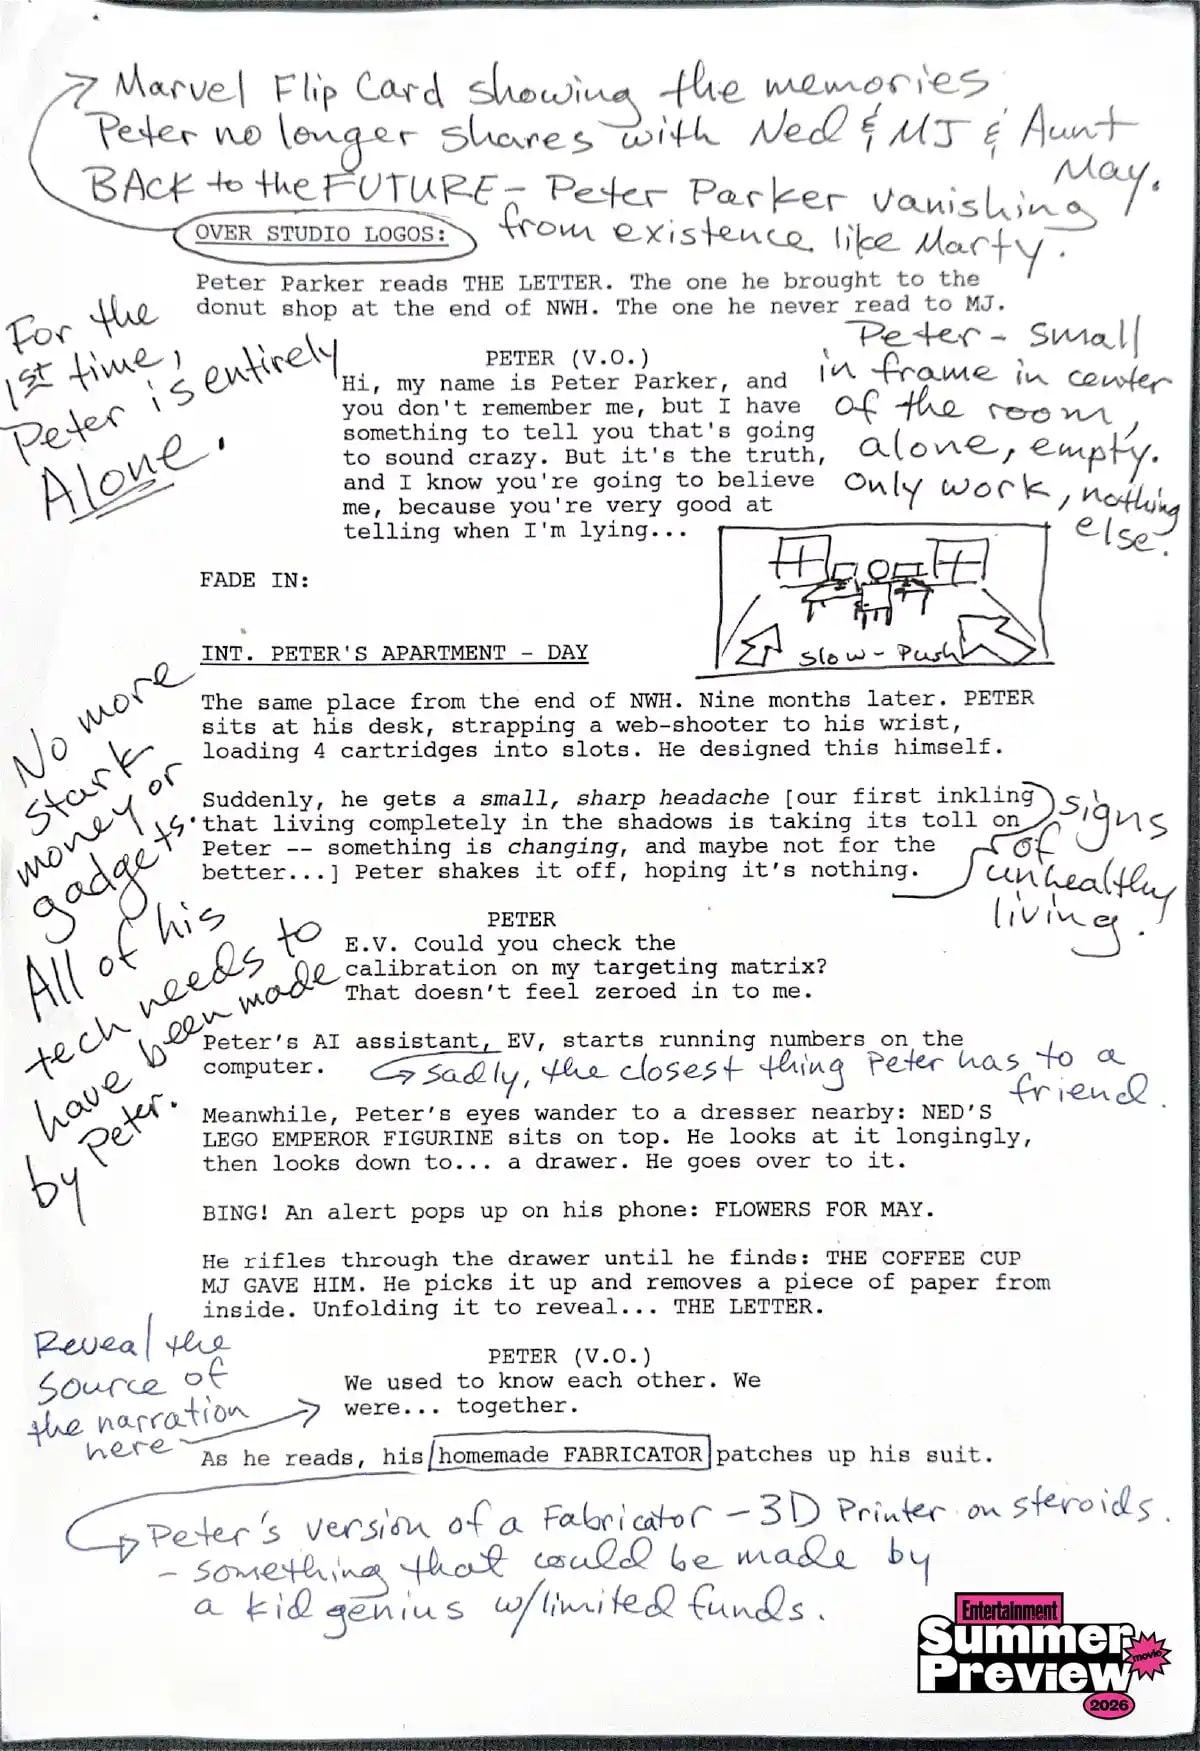 Marvel Flip Card showing the memories
Peter no longer shares with Ned & MJ & Aunt
May.
BACK to the FUTURE - Peter Parker vanishing
from existence like Marty.
OVER STUDIO LOGOS:
Peter Parker reads THE LETTER. The one he brought to the
donut shop at the end of NWH. The one he never read to MJ.
For the
1st time,
Peter is entirely
Alone.
Peter - small
in frame in center
of the room,
alone, empty.
only work, nothing
else.
PETER (V.O.)
Hi, my name is Peter Parker, and
you don't remember me, but I have
something to tell you that's going
to sound crazy. But it's the truth,
and I know you're going to believe
me, because you're very good at
telling when I'm lying...
FADE IN:
Slow-Push
INT. PETER'S APARTMENT - DAY
The same place from the end of NWH. Nine months later. PETER
sits at his desk, strapping a web-shooter to his wrist,
loading 4 cartridges into slots. He designed this himself.
No more
Stark
money or
gadgets.
All of his
tech needs to
have been made
by Peter.
Suddenly, he gets a small, sharp headache [our first inkling
that living completely in the shadows is taking its toll on
Peter -- something is changing, and maybe not for the
better...] Peter shakes it off, hoping it's nothing.
signs
of
unhealthy
living.
PETER
E.V. Could you check the
calibration on my targeting matrix?
That doesn't feel zeroed in to me.
Peter's AI assistant, EV, starts running numbers on the
computer.
Sadly, the closest thing Peter has to a
friend.
Meanwhile, Peter's eyes wander to a dresser nearby: NED'S
LEGO EMPEROR FIGURINE sits on top. He looks at it longingly,
then looks down to... a drawer. He goes over to it.
BING! An alert pops up on his phone: FLOWERS FOR MAY.
He rifles through the drawer until he finds: THE COFFEE CUP
MJ GAVE HIM. He picks it up and removes a piece of paper from
inside. Unfolding it to reveal... THE LETTER.
Reveal the
source of
the narration
here
PETER (V.O.)
We used to know each other. We
were... together.
As he reads, his homemade FABRICATOR patches up his suit.
Peter's version of a Fabricator - 3D Printer on steroids.
- something that could be made by
a kid genius w/limited funds.
Entertainment
Summer
movie
Preview
2026